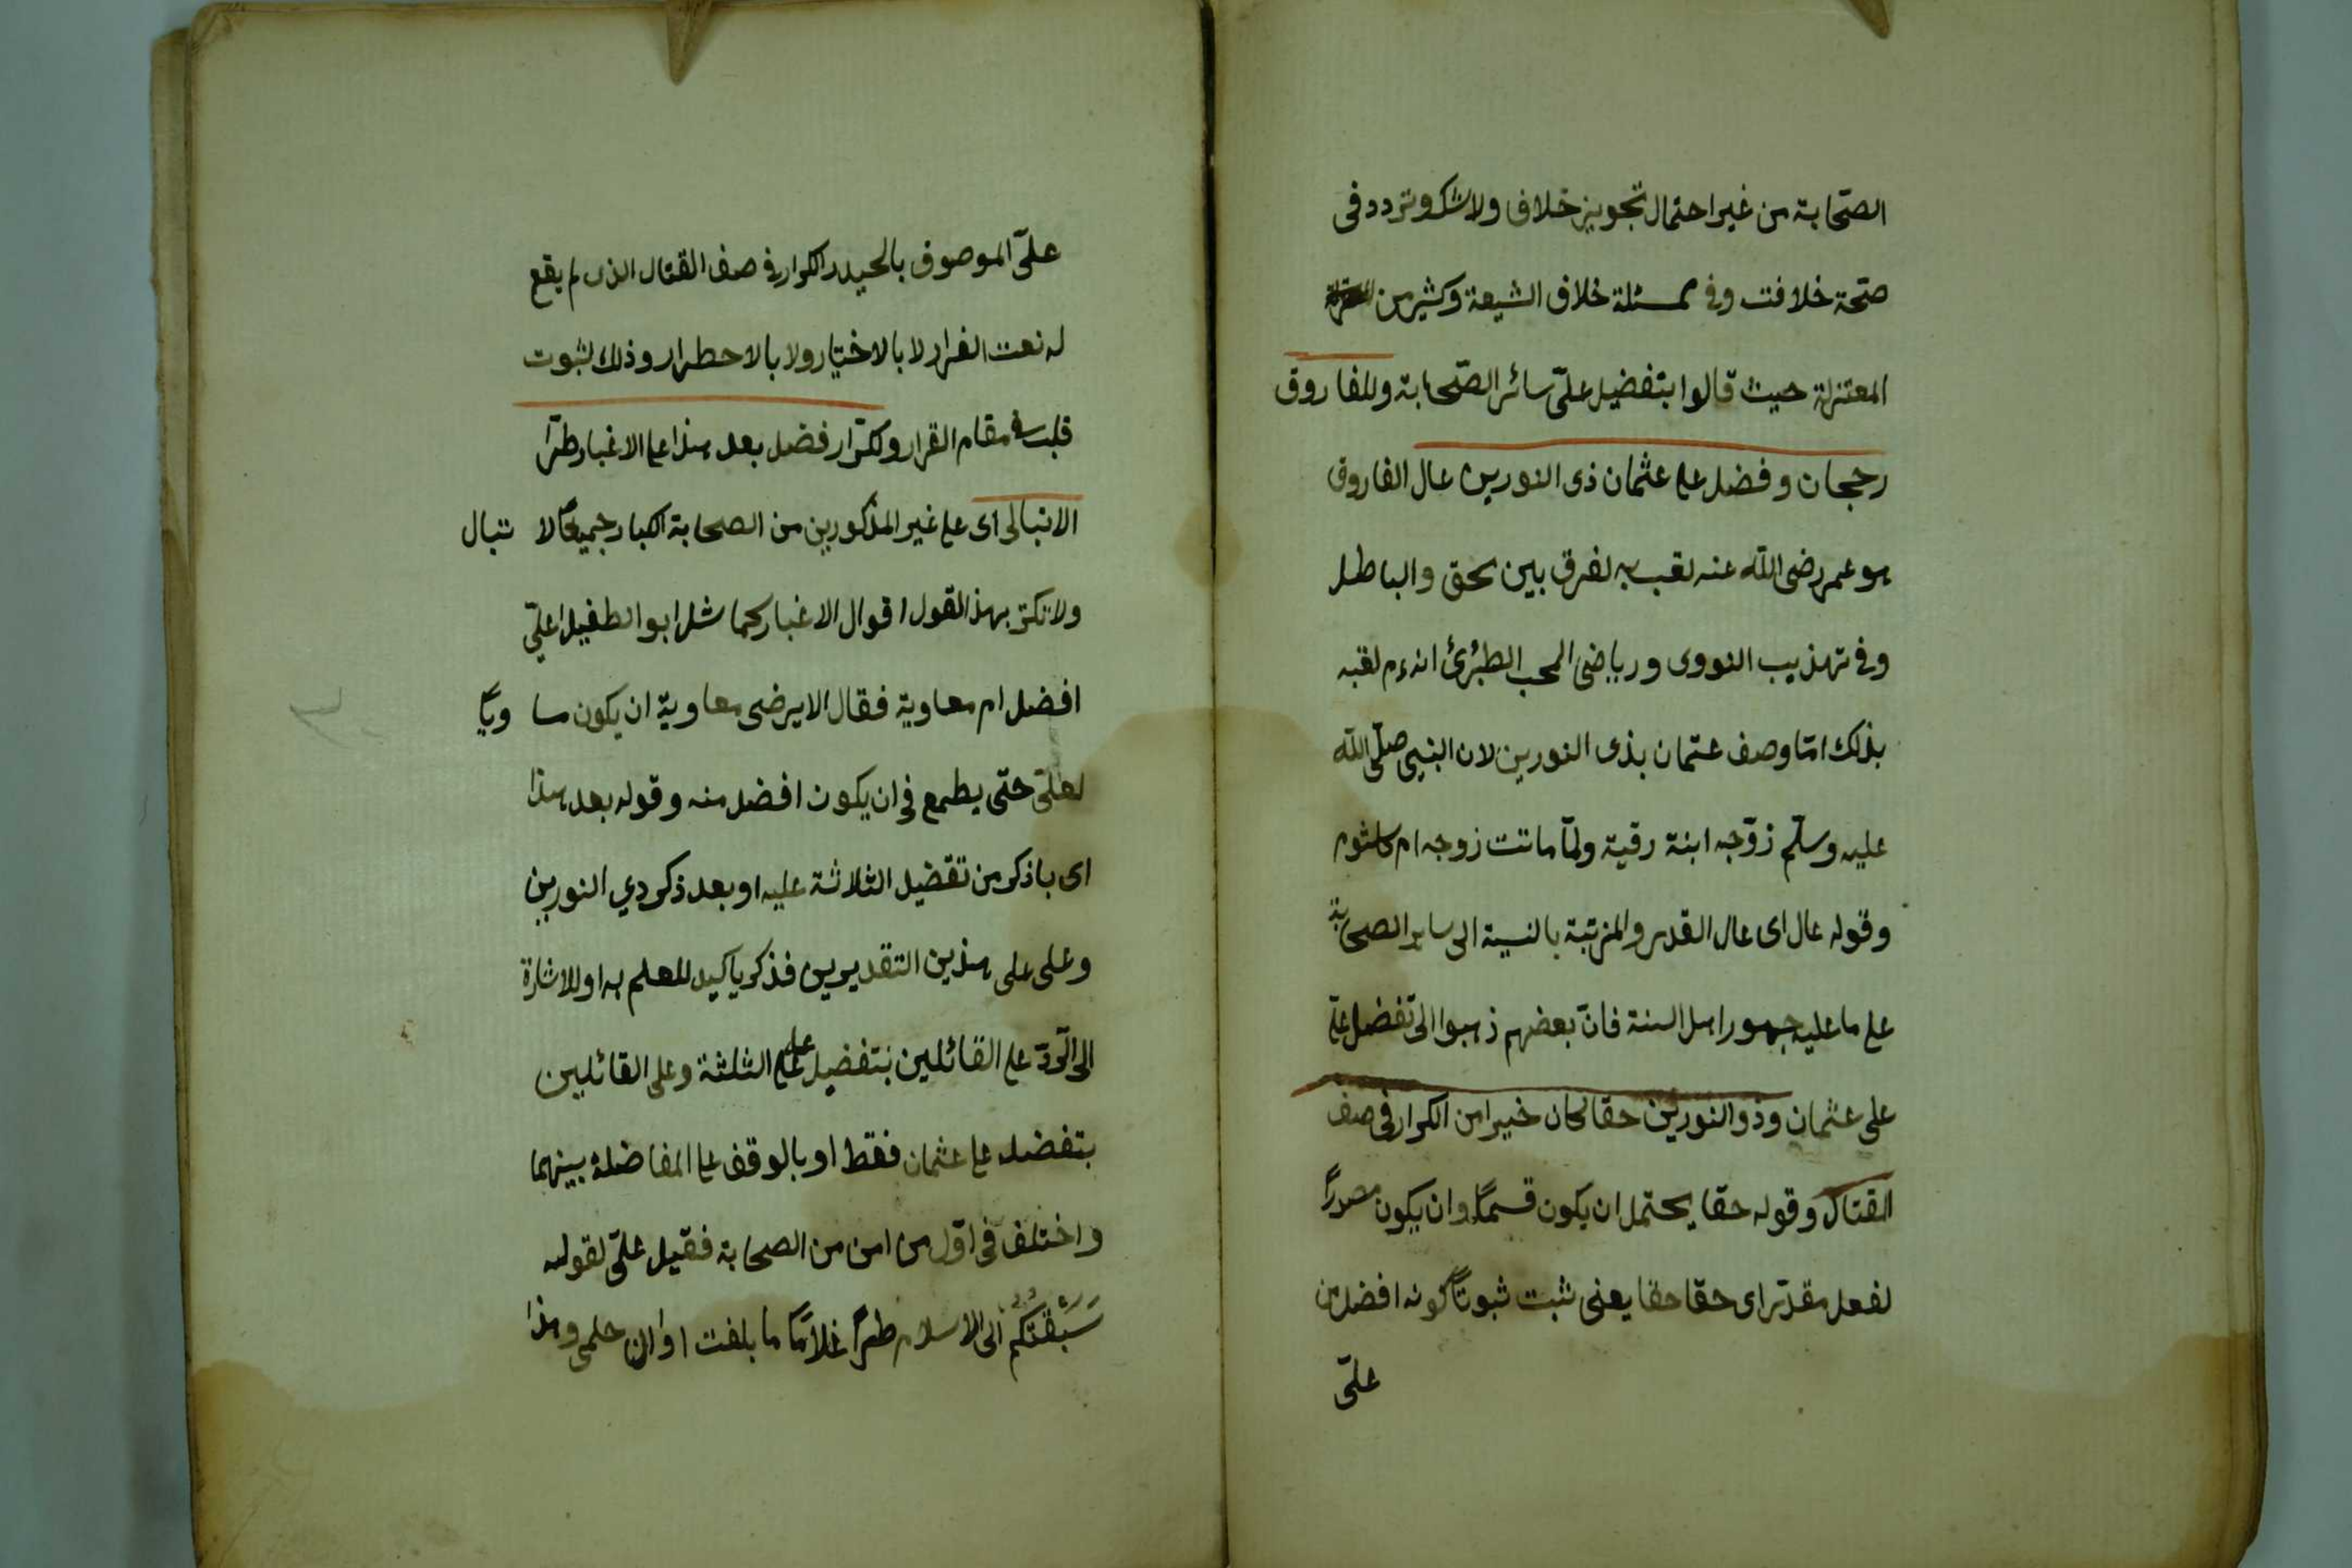 الصّحابة من غير احتمال تجويز خلاف ولا شك وتردد فى
صحّة خلافت وفى مسئلة خلاف الشيعة وكثير من
المعتزلة حيث قالوا بتفضيل علىّ سائر الصّحابة وللفاروق
رجحان وفضل على عثمان ذى النورين عال الفاروق
هو عمر رضى الله عنه لقب به لفرق بين الحق والباطل
وفى تهذيب النووى ورياض المحب الطبرى انه م لقبه
بذلك امّا وصف عثمان بذى النورين لان النبى صلّى الله
عليه وسلّم زوّجه ابنة رقية ولمّا ماتت زوجه ام كلثوم
وقوله عال اى عال القدر والمرتبة بالنسبة الى ساير الصحابة
على ما عليه جمهور اهل السنة فانّ بعضهم ذهبوا الى تفضل علىّ
على عثمان وذو النورين حقا كان خيرا من الكرار فى صف
القتال وقوله حقا يحتمل ان يكون قسمًا وان يكون مصدرًا
لفعل مقدّر اى حقا حقا يعنى ثبت ثبوتًا كونه افضل من
علىّ
علىّ الموصوف بالحيدر الكرار فى صف القتال الذى لم يقع
له نعت الفرار لا بالاختيار ولا بالاحطرار وذلك لثبوت
قلبه فى مقام القرار وللكرّار فضل بعد هذا على الاغيار طرّا
لا تبالى اى على غير المذكورين من الصحابة الكبار جميعًا لا تبال
ولا تكتر بهذ القول اقوال الاغيار كما سئل ابو الطفيل اعلىّ
افضل ام معاوية فقال الا يرضى معاوية ان يكون مساويًا
لعلىّ حتّى يطمع فى ان يكون افضل منه وقوله بعد هذا
اى باذكر من تفضيل الثلاثة عليه او بعد ذكر دي النورين
وعلى على هذين التقديرين فذكر ياكيد للعلم به او للاشارة
الى الرّدّ على القائلين بتفضيل علىّ على الثلثة وعلى القائلين
بتفضله على عثمان فقط او بالوقف على المفاضلة بينهما
واختلف فى اوّل من امن من الصحابة فقيل علىّ لقوله
سَبَقْتُكُم الى الاسلام طرًّا غلامًا ما بلغت اوان حلمى وهذا